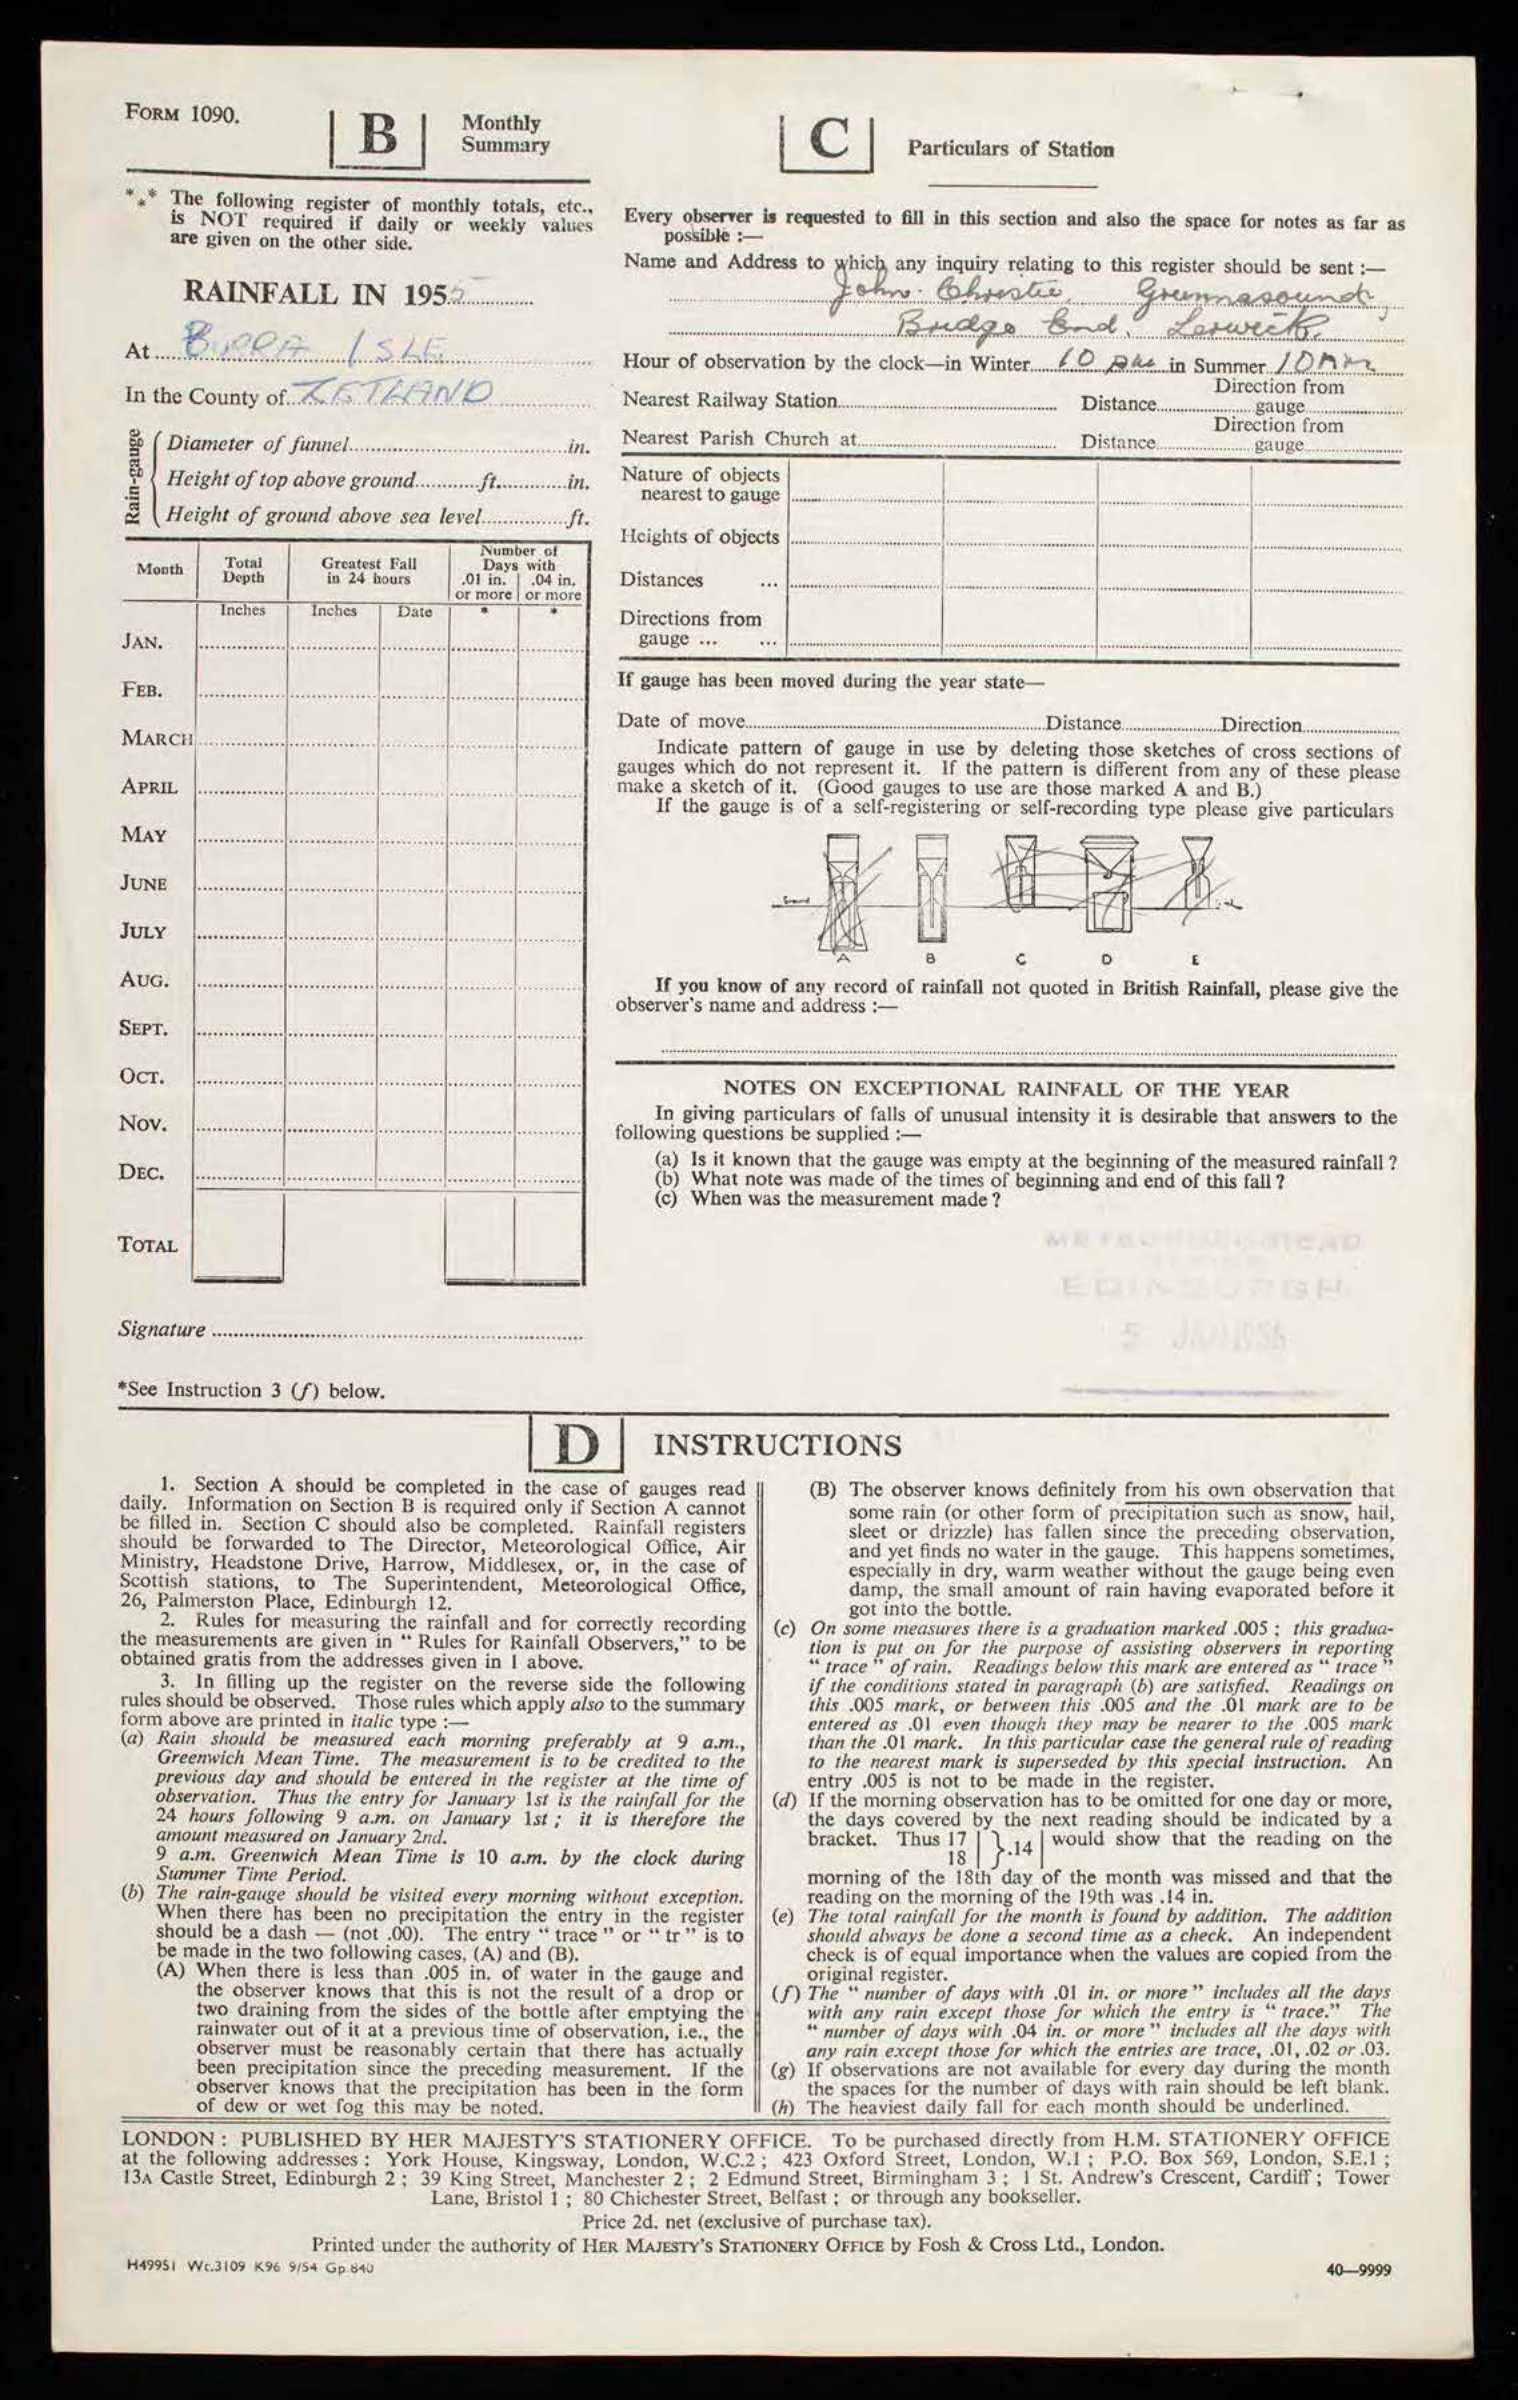 FORM 1090.
B
Monthly
Summary
*** The following register of monthly totals, etc.,
is NOT required if daily or weekly values
are given on the other side.
RAINFALL IN 1955
At BURRA ISLE
In the County of ZETLAND
Rain-gauge
Diameter of funnel in.
Height of top above ground ft. in.
Height of ground above sea level ft.
Month
Total
Depth
Greatest Fall
in 24 hours
Number of
Days with
.01 in. .04 in.
or more or more
Inches Inches Date * *
JAN.
FEB.
MARCH
APRIL
MAY
JUNE
JULY
AUG.
SEPT.
OCT.
NOV.
DEC.
TOTAL
Signature
*See Instruction 3 (f) below.
C
Particulars of Station
Every observer is requested to fill in this section and also the space for notes as far as
possible :—
Name and Address to which any inquiry relating to this register should be sent :—
John Christie
Bridge End, Lerwick
Hour of observation by the clock—in Winter 10 in Summer 10 AM
Nearest Railway Station Distance Direction from
gauge
Nearest Parish Church at Distance Direction from
gauge
Nature of objects
nearest to gauge
Heights of objects
Distances ...
Directions from
gauge ... ...
If gauge has been moved during the year state—
Date of move Distance Direction
Indicate pattern of gauge in use by deleting those sketches of cross sections of
gauges which do not represent it. If the pattern is different from any of these please
make a sketch of it. (Good gauges to use are those marked A and B.)
If the gauge is of a self-registering or self-recording type please give particulars
Ground
A B C D E
If you know of any record of rainfall not quoted in British Rainfall, please give the
observer's name and address :—
NOTES ON EXCEPTIONAL RAINFALL OF THE YEAR
In giving particulars of falls of unusual intensity it is desirable that answers to the
following questions be supplied :—
(a) Is it known that the gauge was empty at the beginning of the measured rainfall ?
(b) What note was made of the times of beginning and end of this fall ?
(c) When was the measurement made ?
EDINBURGH
5 JAN 1956
D INSTRUCTIONS
1. Section A should be completed in the case of gauges read
daily. Information on Section B is required only if Section A cannot
be filled in. Section C should also be completed. Rainfall registers
should be forwarded to The Director, Meteorological Office, Air
Ministry, Headstone Drive, Harrow, Middlesex, or, in the case of
Scottish stations, to The Superintendent, Meteorological Office,
26, Palmerston Place, Edinburgh 12.
2. Rules for measuring the rainfall and for correctly recording
the measurements are given in " Rules for Rainfall Observers," to be
obtained gratis from the addresses given in 1 above.
3. In filling up the register on the reverse side the following
rules should be observed. Those rules which apply also to the summary
form above are printed in italic type :—
(a) Rain should be measured each morning preferably at 9 a.m.,
Greenwich Mean Time. The measurement is to be credited to the
previous day and should be entered in the register at the time of
observation. Thus the entry for January 1st is the rainfall for the
24 hours following 9 a.m. on January 1st ; it is therefore the
amount measured on January 2nd.
9 a.m. Greenwich Mean Time is 10 a.m. by the clock during
Summer Time Period.
(b) The rain-gauge should be visited every morning without exception.
When there has been no precipitation the entry in the register
should be a dash — (not .00). The entry " trace " or " tr " is to
be made in the two following cases, (A) and (B).
(A) When there is less than .005 in. of water in the gauge and
the observer knows that this is not the result of a drop or
two draining from the sides of the bottle after emptying the
rainwater out of it at a previous time of observation, i.e., the
observer must be reasonably certain that there has actually
been precipitation since the preceding measurement. If the
observer knows that the precipitation has been in the form
of dew or wet fog this may be noted.
(B) The observer knows definitely from his own observation that
some rain (or other form of precipitation such as snow, hail,
sleet or drizzle) has fallen since the preceding observation,
and yet finds no water in the gauge. This happens sometimes,
especially in dry, warm weather without the gauge being even
damp, the small amount of rain having evaporated before it
got into the bottle.
(c) On some measures there is a graduation marked .005 ; this gradua-
tion is put on for the purpose of assisting observers in reporting
" trace " of rain. Readings below this mark are entered as " trace "
if the conditions stated in paragraph (b) are satisfied. Readings on
this .005 mark, or between this .005 and the .01 mark are to be
entered as .01 even though they may be nearer to the .005 mark
than the .01 mark. In this particular case the general rule of reading
to the nearest mark is superseded by this special instruction. An
entry .005 is not to be made in the register.
(d) If the morning observation has to be omitted for one day or more,
the days covered by the next reading should be indicated by a
bracket. Thus 17 | }.14 | would show that the reading on the
18
morning of the 18th day of the month was missed and that the
reading on the morning of the 19th was .14 in.
(e) The total rainfall for the month is found by addition. The addition
should always be done a second time as a check. An independent
check is of equal importance when the values are copied from the
original register.
(f) The " number of days with .01 in. or more " includes all the days
with any rain except those for which the entry is " trace." The
" number of days with .04 in. or more " includes all the days with
any rain except those for which the entries are trace, .01, .02 or .03.
(g) If observations are not available for every day during the month
the spaces for the number of days with rain should be left blank.
(h) The heaviest daily fall for each month should be underlined.
LONDON : PUBLISHED BY HER MAJESTY'S STATIONERY OFFICE. To be purchased directly from H.M. STATIONERY OFFICE
at the following addresses : York House, Kingsway, London, W.C.2 ; 423 Oxford Street, London, W.1 ; P.O. Box 569, London, S.E.1 ;
13A Castle Street, Edinburgh 2 ; 39 King Street, Manchester 2 ; 2 Edmund Street, Birmingham 3 ; 1 St. Andrew's Crescent, Cardiff ; Tower
Lane, Bristol 1 ; 80 Chichester Street, Belfast ; or through any bookseller.
Price 2d. net (exclusive of purchase tax).
Printed under the authority of HER MAJESTY'S STATIONERY OFFICE by Fosh & Cross Ltd., London.
H49951 Wt.3109 K96 9/54 Gp.840
40—9999